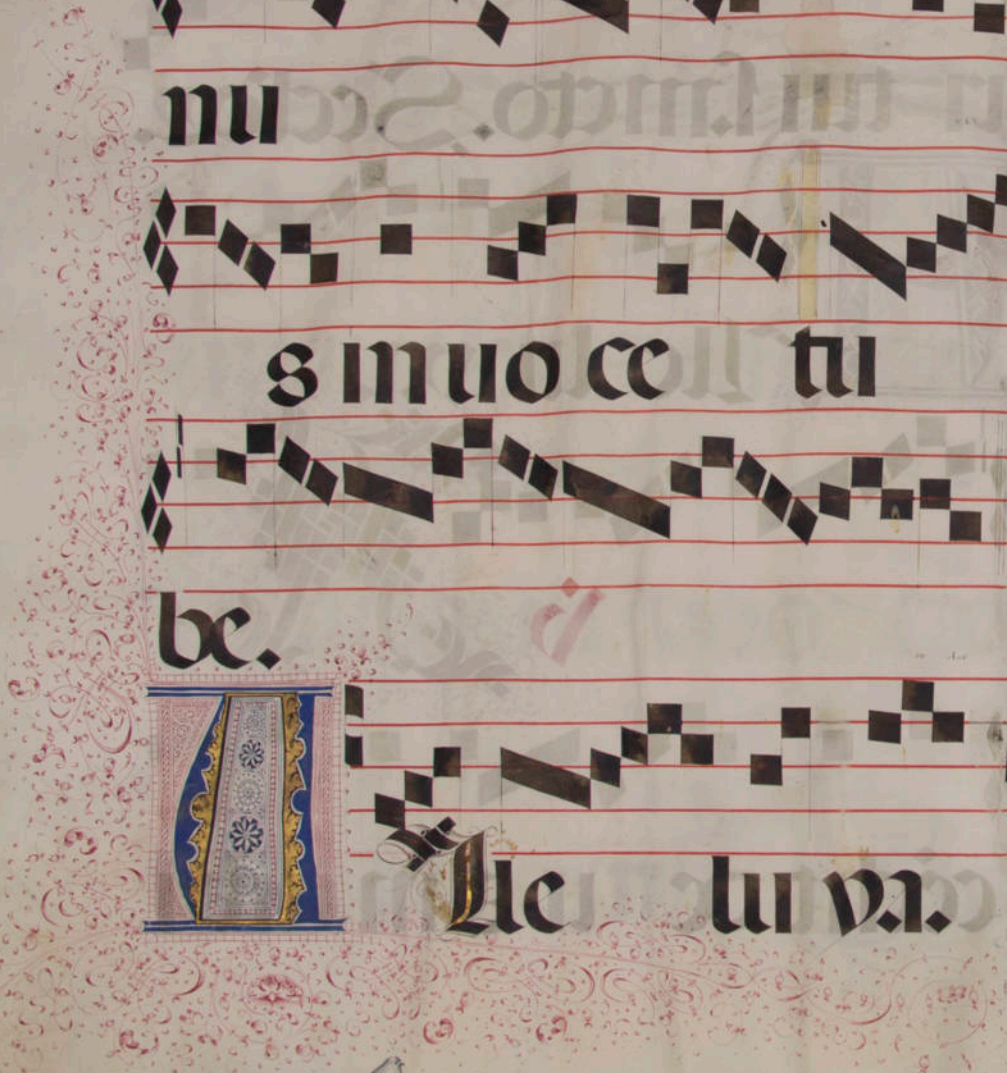 nu
s in uo ce tu
be.
Alle lu ya.